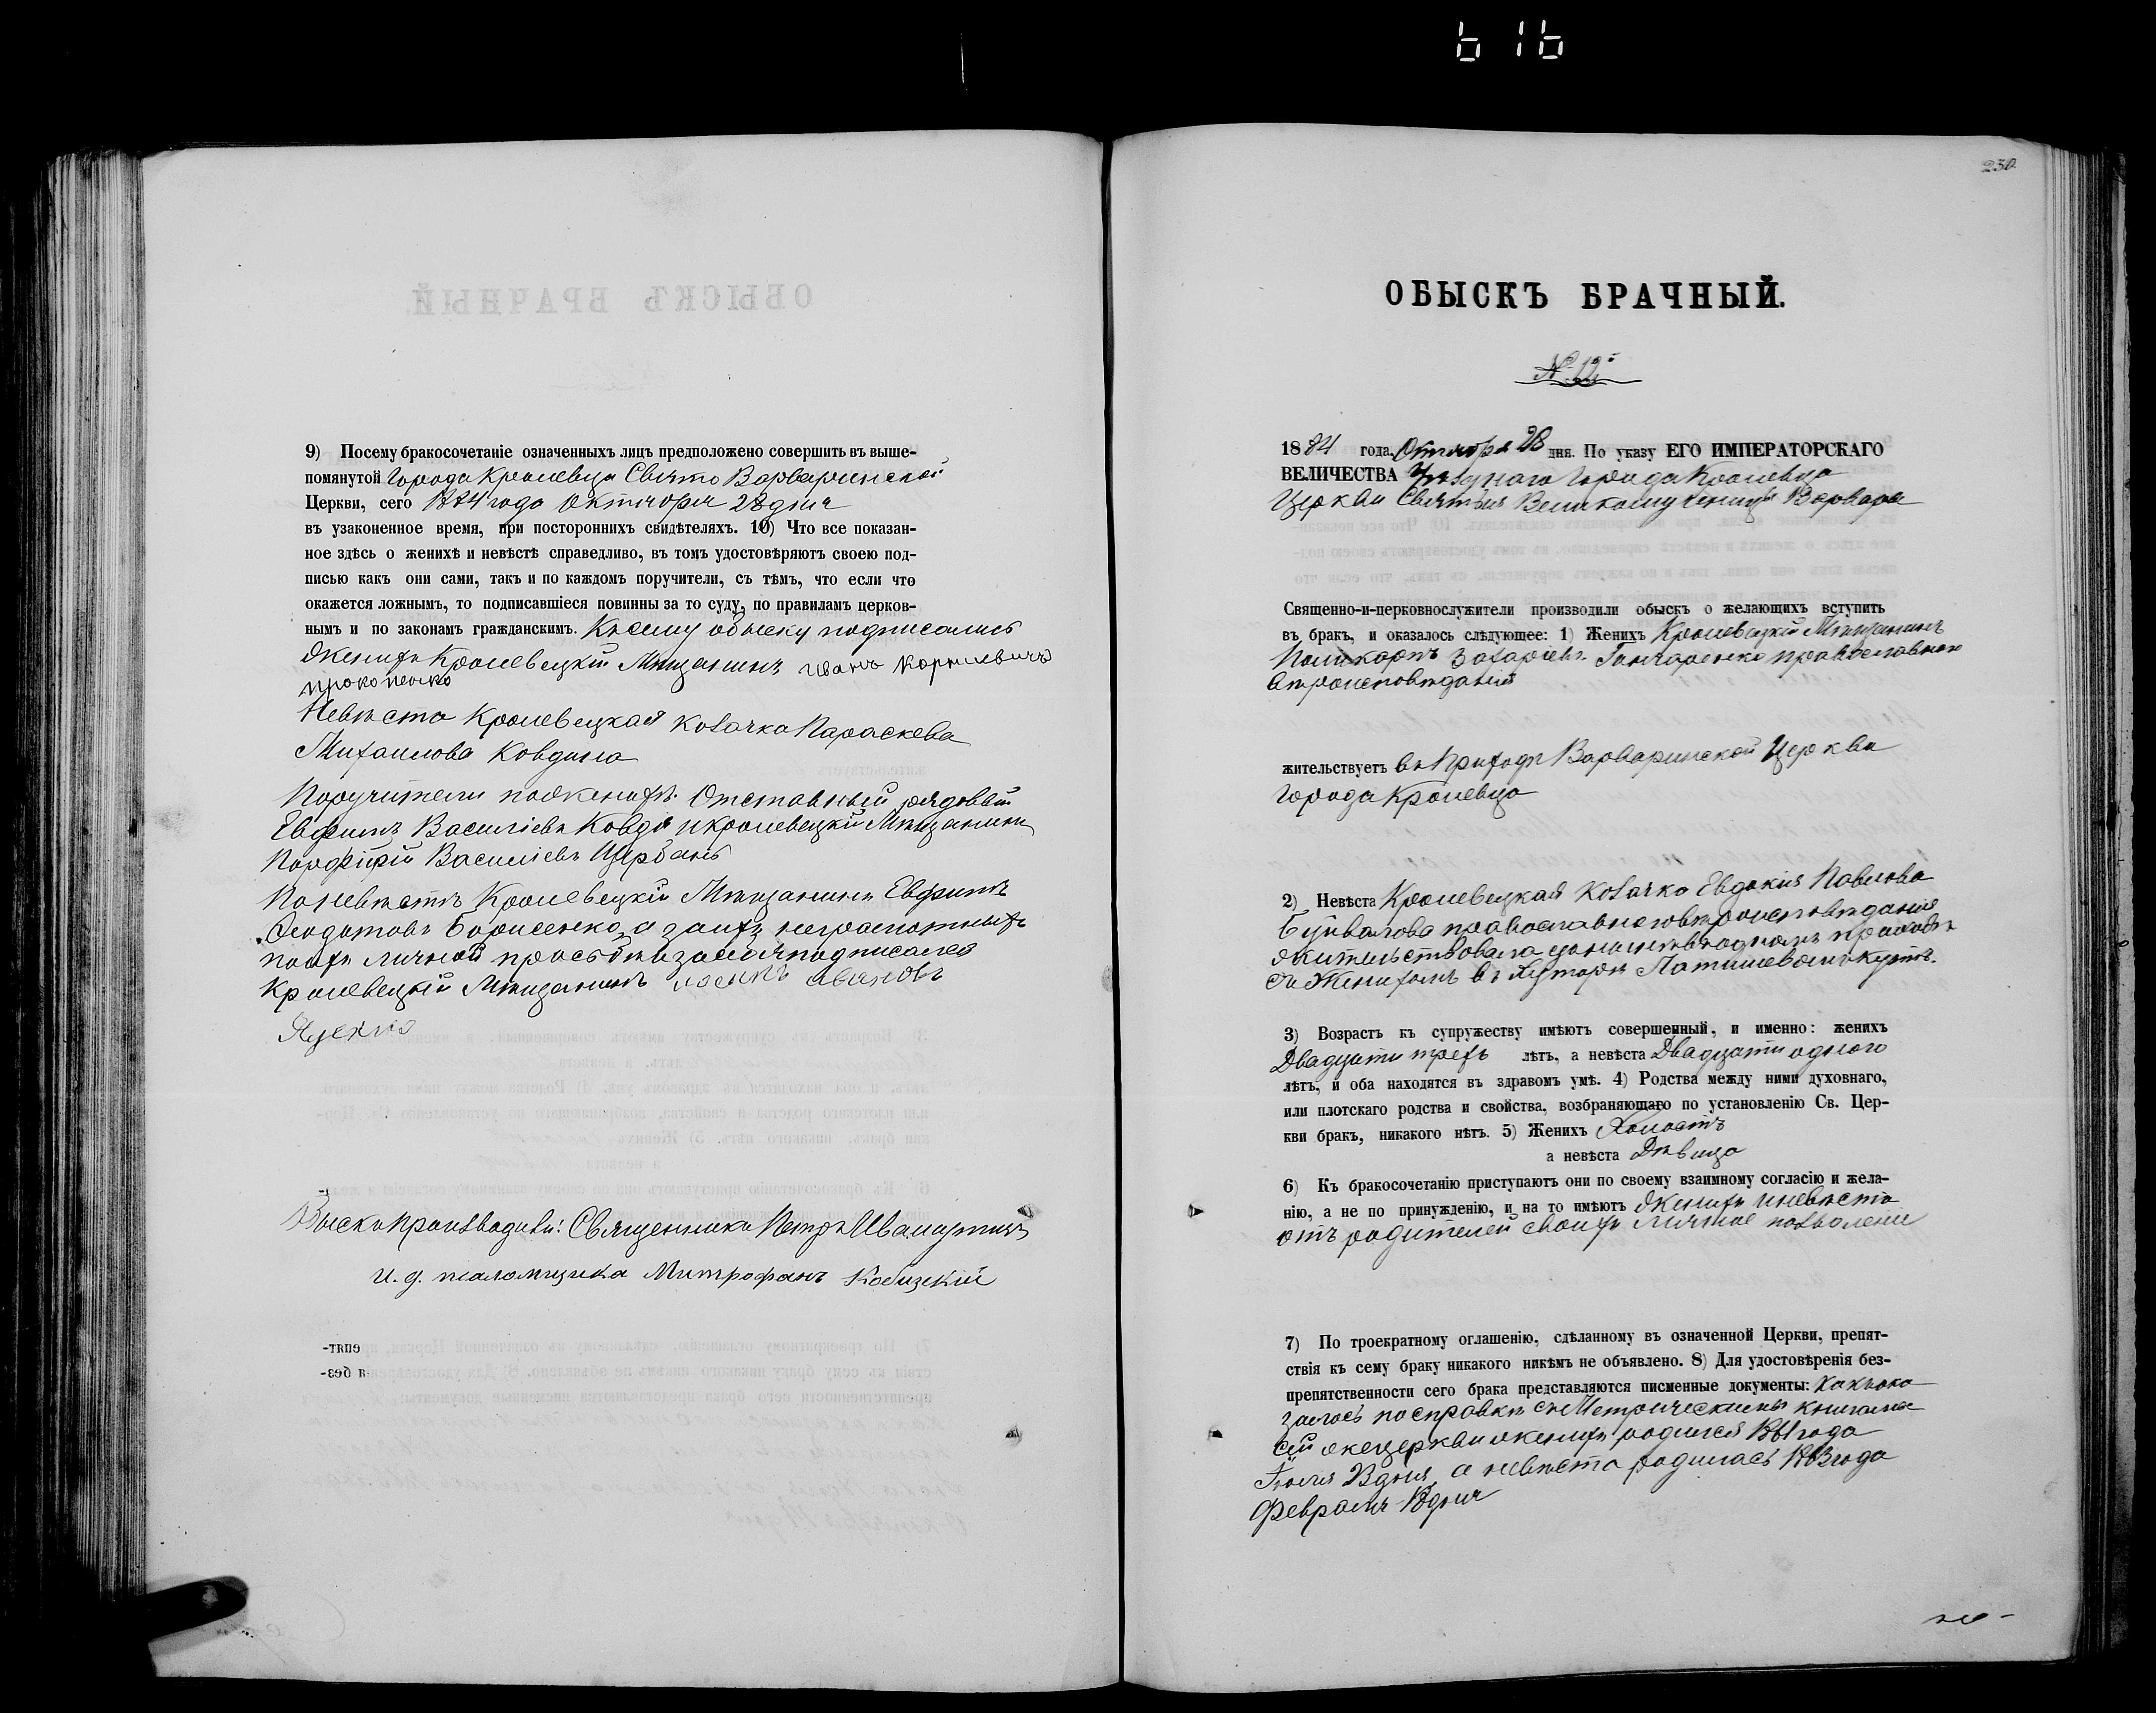 616
9) Посему бракосочетаніе означенныхъ лицъ предположено совершить въ выше-
помянутой города Кролевца Свято Варваринской
Церкви, сего 1884 года Октября 28 дня
въ узаконенное время, при постороннихъ свидѣтеляхъ. 10) Что все показан-
ное здѣсь о женихѣ и невѣстѣ справедливо, въ томъ удостовѣряютъ своею под-
писью какъ они сами, такъ и по каждомъ поручители, съ тѣмъ, что если что
окажется ложнымъ, то подписавшіеся повинны за то суду, по правиламъ церков-
нымъ и по законамъ гражданскимъ. Къ сему обыску подписались
Женихъ Кролевецкій Мѣщанинъ иванъ Корниевичъ
прокопенко
Невѣста Кролевецкая козачка Параскева
Михаилова Ковдина
Поручители по женихѣ: Отставный рядовый
Евфимъ Василіевъ Ковдя и кролевецкій Мѣщанинъ
Порфирій Василіевъ Щербань
По невѣстѣ Кролевецкій Мѣщанинъ Евфимъ
Борисенко, а за ихъ неграмотныхъ
по ихъ личной прозьбѣ и за себя подписался
Кролевецкій Мѣщанинъ
Обыскъ производили: Священникъ Петръ
и. д. псаломщика Митрофанъ
230
ОБЫСКЪ БРАЧНЫЙ.
№ 12й
1884 года Октября 28 дня. По указу ЕГО ИМПЕРАТОРСКАГО
ВЕЛИЧЕСТВА Уѣзднаго Города Кролевца
Церкви Святыя Великомученицы Варвары
Священно-и-церковнослужители производили обыскъ о желающихъ вступить
въ бракъ, и оказалось слѣдующее: 1) Женихъ Кролевецкій Мѣщанинъ
Поликарпъ Захаріевъ Гончаренко православнаго
вѣроисповѣданія
жительствуетъ въ Приходѣ Варваринской Церкви
города Кролевца
2) Невѣста Кролевецкая козачка Евдокія Павлова
Буйвалова православнаго вѣроисповѣданія
жительствовала до нынѣ въ одномъ приходѣ
съ Женихомъ въ
3) Возрастъ къ супружеству имѣютъ совершенный, и именно: женихъ
Двадцати трехъ лѣтъ, а невѣста Двадцати одного
лѣтъ, и оба находятся въ здравомъ умѣ. 4) Родства между ними духовнаго,
или плотскаго родства и свойства, возбраняющаго по установленію Св. Цер-
кви бракъ, никакого нѣтъ. 5) Женихъ Холостъ
а невѣста Дѣвица
6) Къ бракосочетанію приступаютъ они по своему взаимному согласію и жела-
нію, а не по принужденію, и на то имѣютъ Женихъ и невѣста
отъ родителей своихъ личное позволеніе
7) По троекратному оглашенію, сдѣланному въ означенной Церкви, препят-
ствія къ сему браку никакого никѣмъ не объявлено. 8) Для удостовѣренія без-
препятственности сего брака представляются писменные документы: Какъ ока
залось по справкѣ съ Метрическими книгами
сей же церкви женихъ родился 1861 года
дня, а невѣста родилась 1863 года
Февраля дня